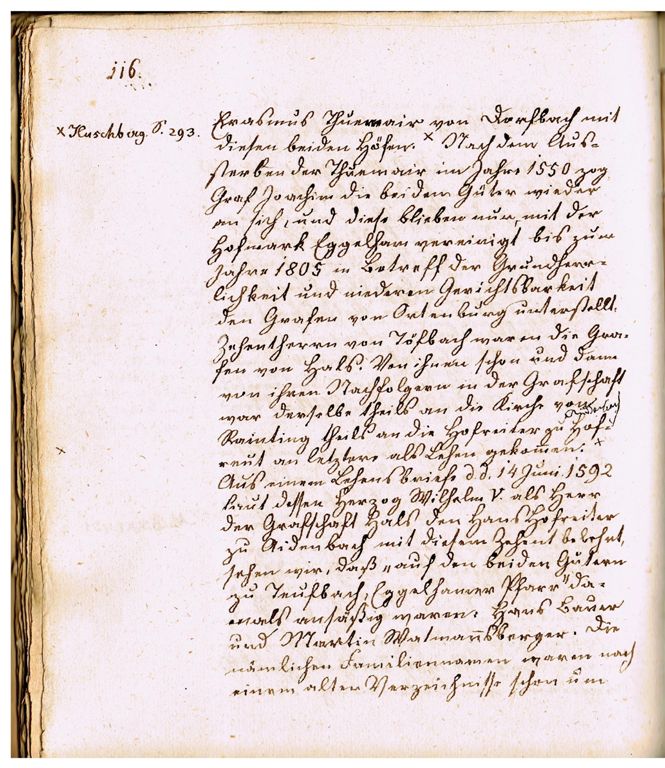 116.
× Huschberg. S. 293.
Erasmus Thuemair von Dorfbach mit
diesen beiden Höfen. × Nach dem Aus-
sterben der Thuemair im Jahre 1550 zog
Graf Joachim die beiden Güter wieder
an sich, und diese blieben nun, mit der
Hofmark Eggelham vereinigt bis zum
Jahre 1805 in Betreff der Grundherr-
lichkeit und niederen Gerichtsbarkeit
den Grafen von Ortenburg unterstellt.
Zehentherrn von Töfbach waren die Gra-
fen von Hals. Von ihnen schon und dann
von ihren Nachfolgern in der Grafschaft
war derselbe theils an die Kirche von
Rainting theils an die Hofreiter zu Hof-
reut an letztere als Lehen gekommen. ×
×
Aus einem Lehensbriefe d.d. 14 Juni 1592
laut dessen Herzog Wilhelm V. als Herr
der Grafschaft Hals den Hans Hofreiter
zu Aidenbach mit diesem Zehent belehnt,
sehen wir, daß „auf den beiden Gütern
zu Teufbach, Eggelhamer Pfarr" da-
mals ansäßig waren: Hans Bauer
und Martin Watmansberger. Die
nämlichen Familiennamen waren nach
einem alten Verzeichnisse schon um